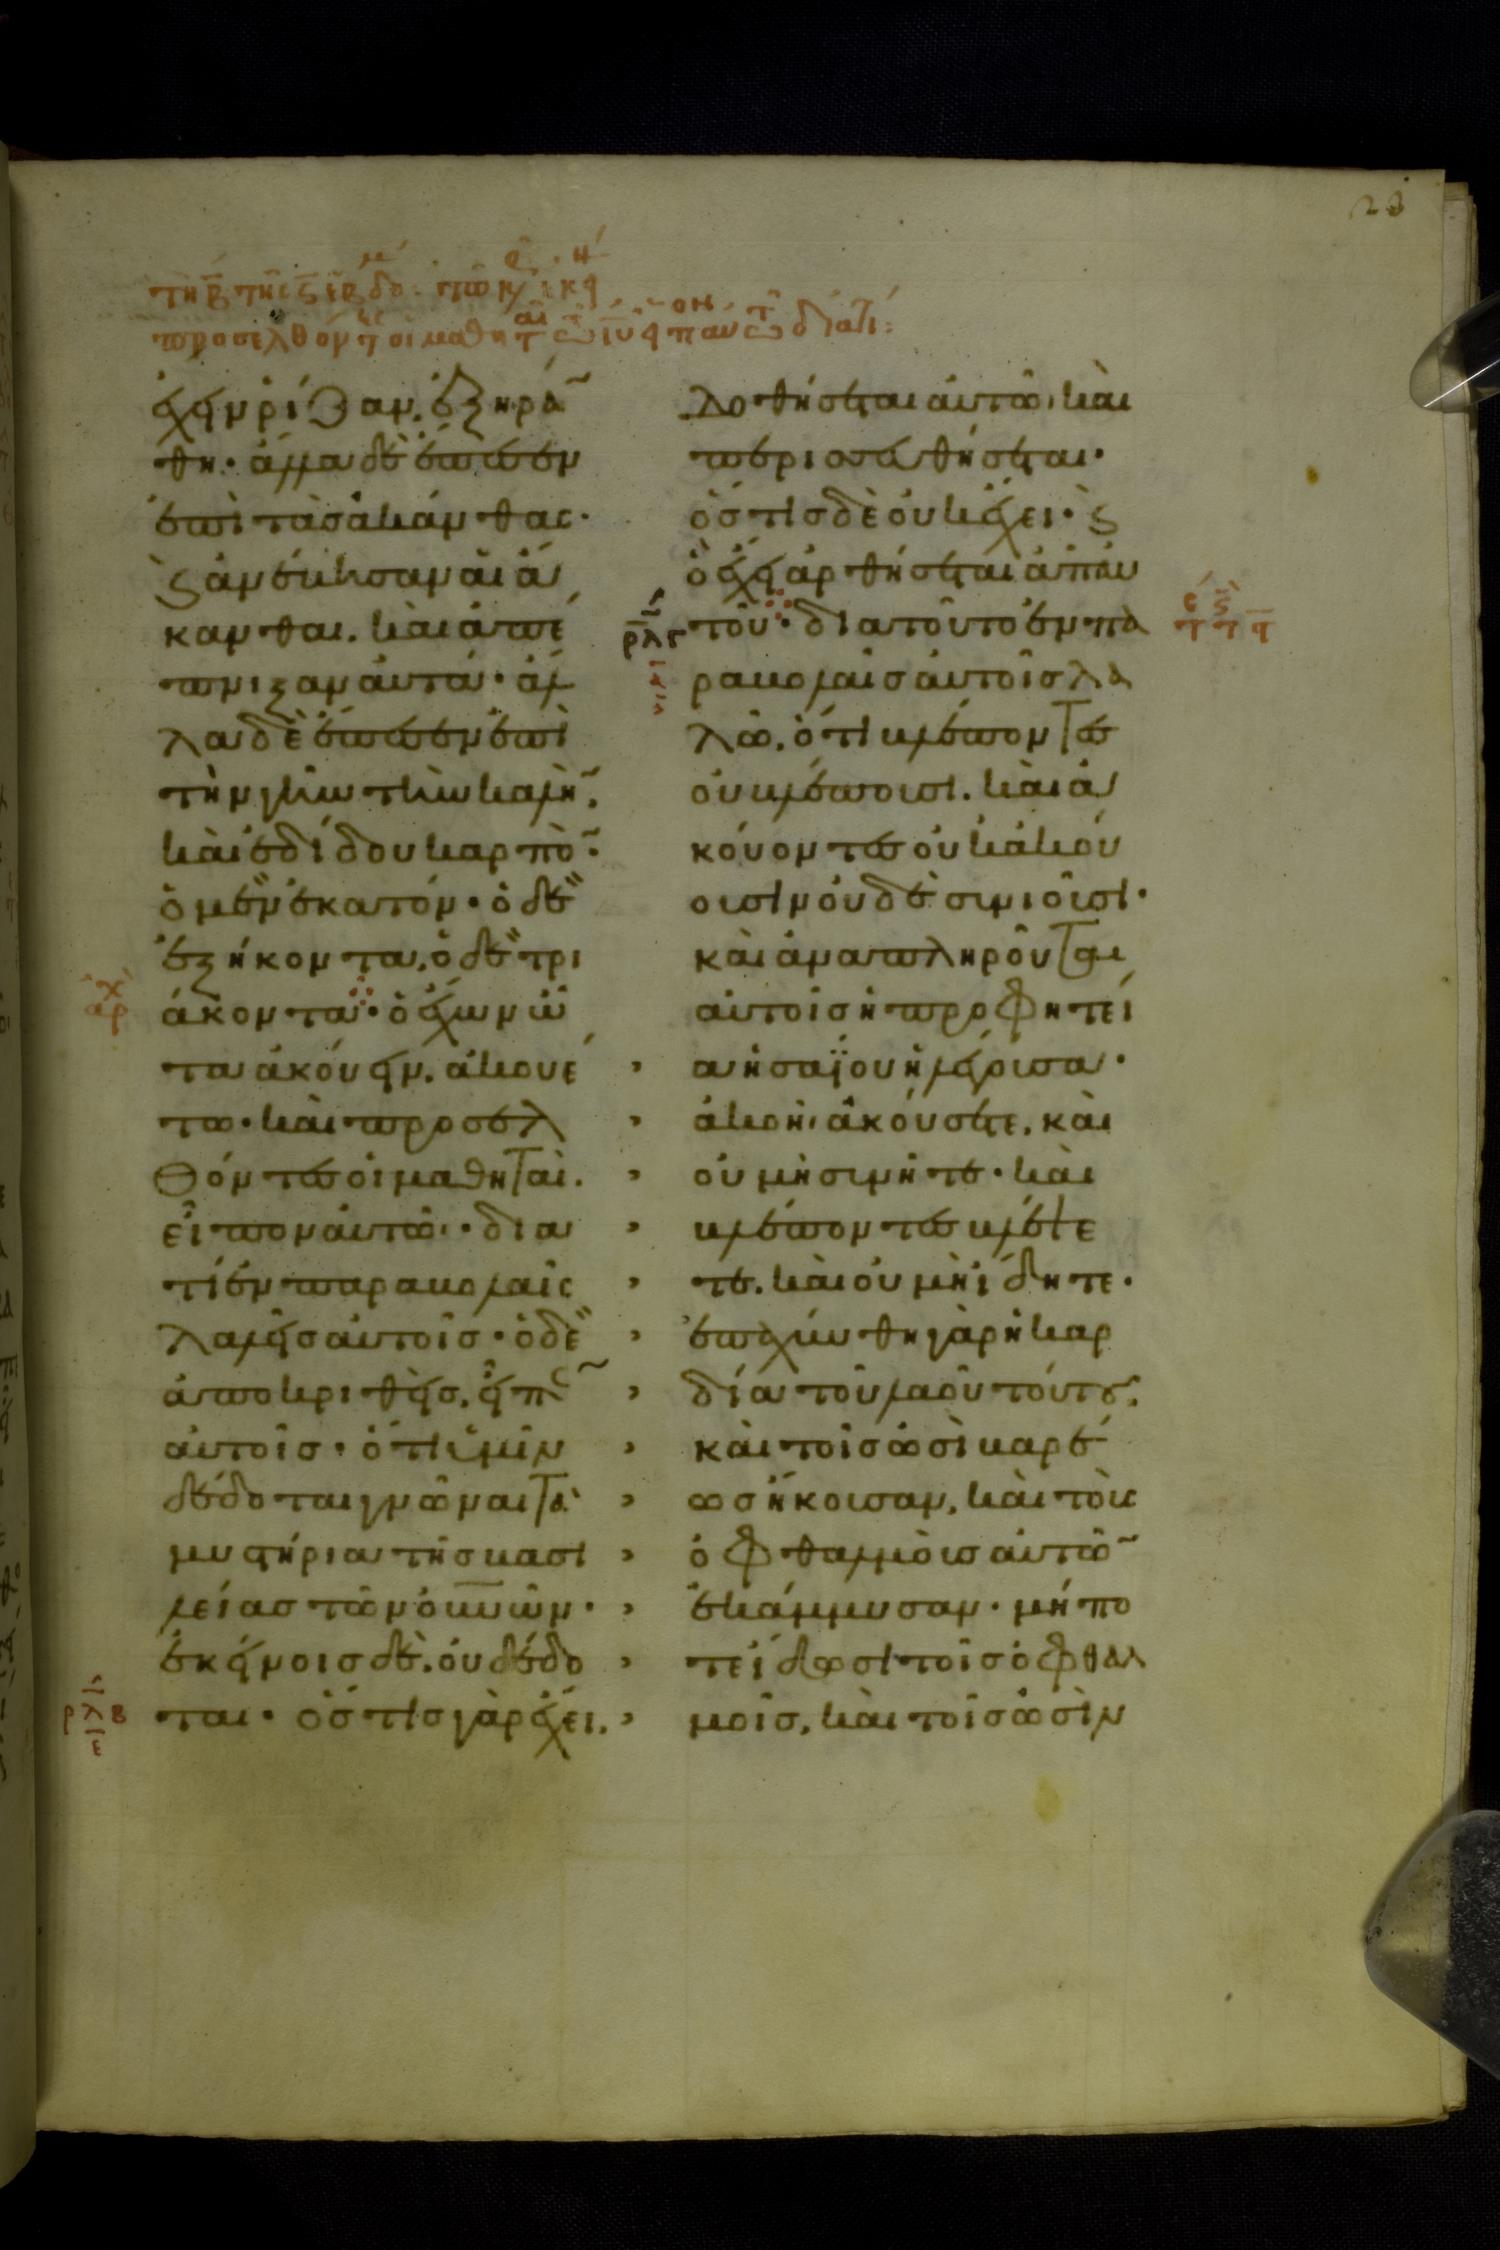 23
τῆ β τῆς ς ἑβδο
προσελθόντ οἱ μαθητ τῶ ιυ
ἔχειν ρίζαν, ἐξηρά
θη· ἄλλα δὲ ἔπεσεν
ἐπὶ τὰσ ἀκάνθας·
ϛ ἀνέβησαν αἱ ἄ
κανθαι. καὶ ἀπέ
πνιξαν αυτά· ἄλ
λα δὲ ἔπεσεν ἐπὶ
τὴν γῆν τὴν καλὴ̃.
καὶ ἐδίδου καρπὸ̃·
ὁ μὲν ἑκατόν· ὁ δὲ
ἑξήκοντα, ὁ δὲ τρι
άκοντα· ὁ ἔχων ὦ
τα ἀκούειν. ἀκουέ
τω· καὶ προσελ
θόντεσ οἱ μαθηταὶ.
εἶπον αυτῶ· δια
τί ἐν παραβολαῖς
λαλεῖσ αυτοῖσ· ὁ δὲ
ἀποκριθεὶσ. εἶπε̃
αυτοῖσ· ὅτι ὑμῖν
δέδοται γνῶναι τὰ
μυστήρια τῆσ βασι
λείασ τῶν ουνῶν·
ἐκείνοισ δὲ. οὐ δέδο
ρλβ
ται· ὅστισ γὰρ ἔχει.
δοθήσεται αυτῶ. καὶ
περισσευθήσεται·
ὅστισ δὲ οὐκ ἔχει· ϛ
ὃ ἔχει ἀρθήσεται ἀπ αυ
ρλγ
τοῦ· δια τοῦτο ἐν πα
ραβολαῖσ αυτοῖσ λα
λῶ, ὅτι βλέποντεσ
οὐ βλέπουσι. καὶ ἀ
κούοντεσ οὐκ ἀκού
ουσιν οὐδὲ συνιοῦσι·
καὶ ἀναπληροῦται
αυτοῖσ ἡ προφητεί
α ἡσαΐου ἡ λέγουσα·
ἀκοῆ ἀκούσετε. καὶ
οὐ μὴ συνῆτε· καὶ
βλέποντεσ βλέψε
τε. καὶ οὐ μὴ ίδητε·
ἐπαχύνθη γὰρ ἡ καρ
δία τοῦ λαοῦ τούτου.
καὶ τοῖσ ὠσὶ βαρέ
ωσ ἤκουσαν, καὶ τοὺς
ὀφθαλμοὺσ αυτῶ̃
ἐκάμμυσαν· μήπο
τε ίδωσι τοῖσ ὀφθαλ
μοῖσ, καὶ τοῖσ ὠσὶν